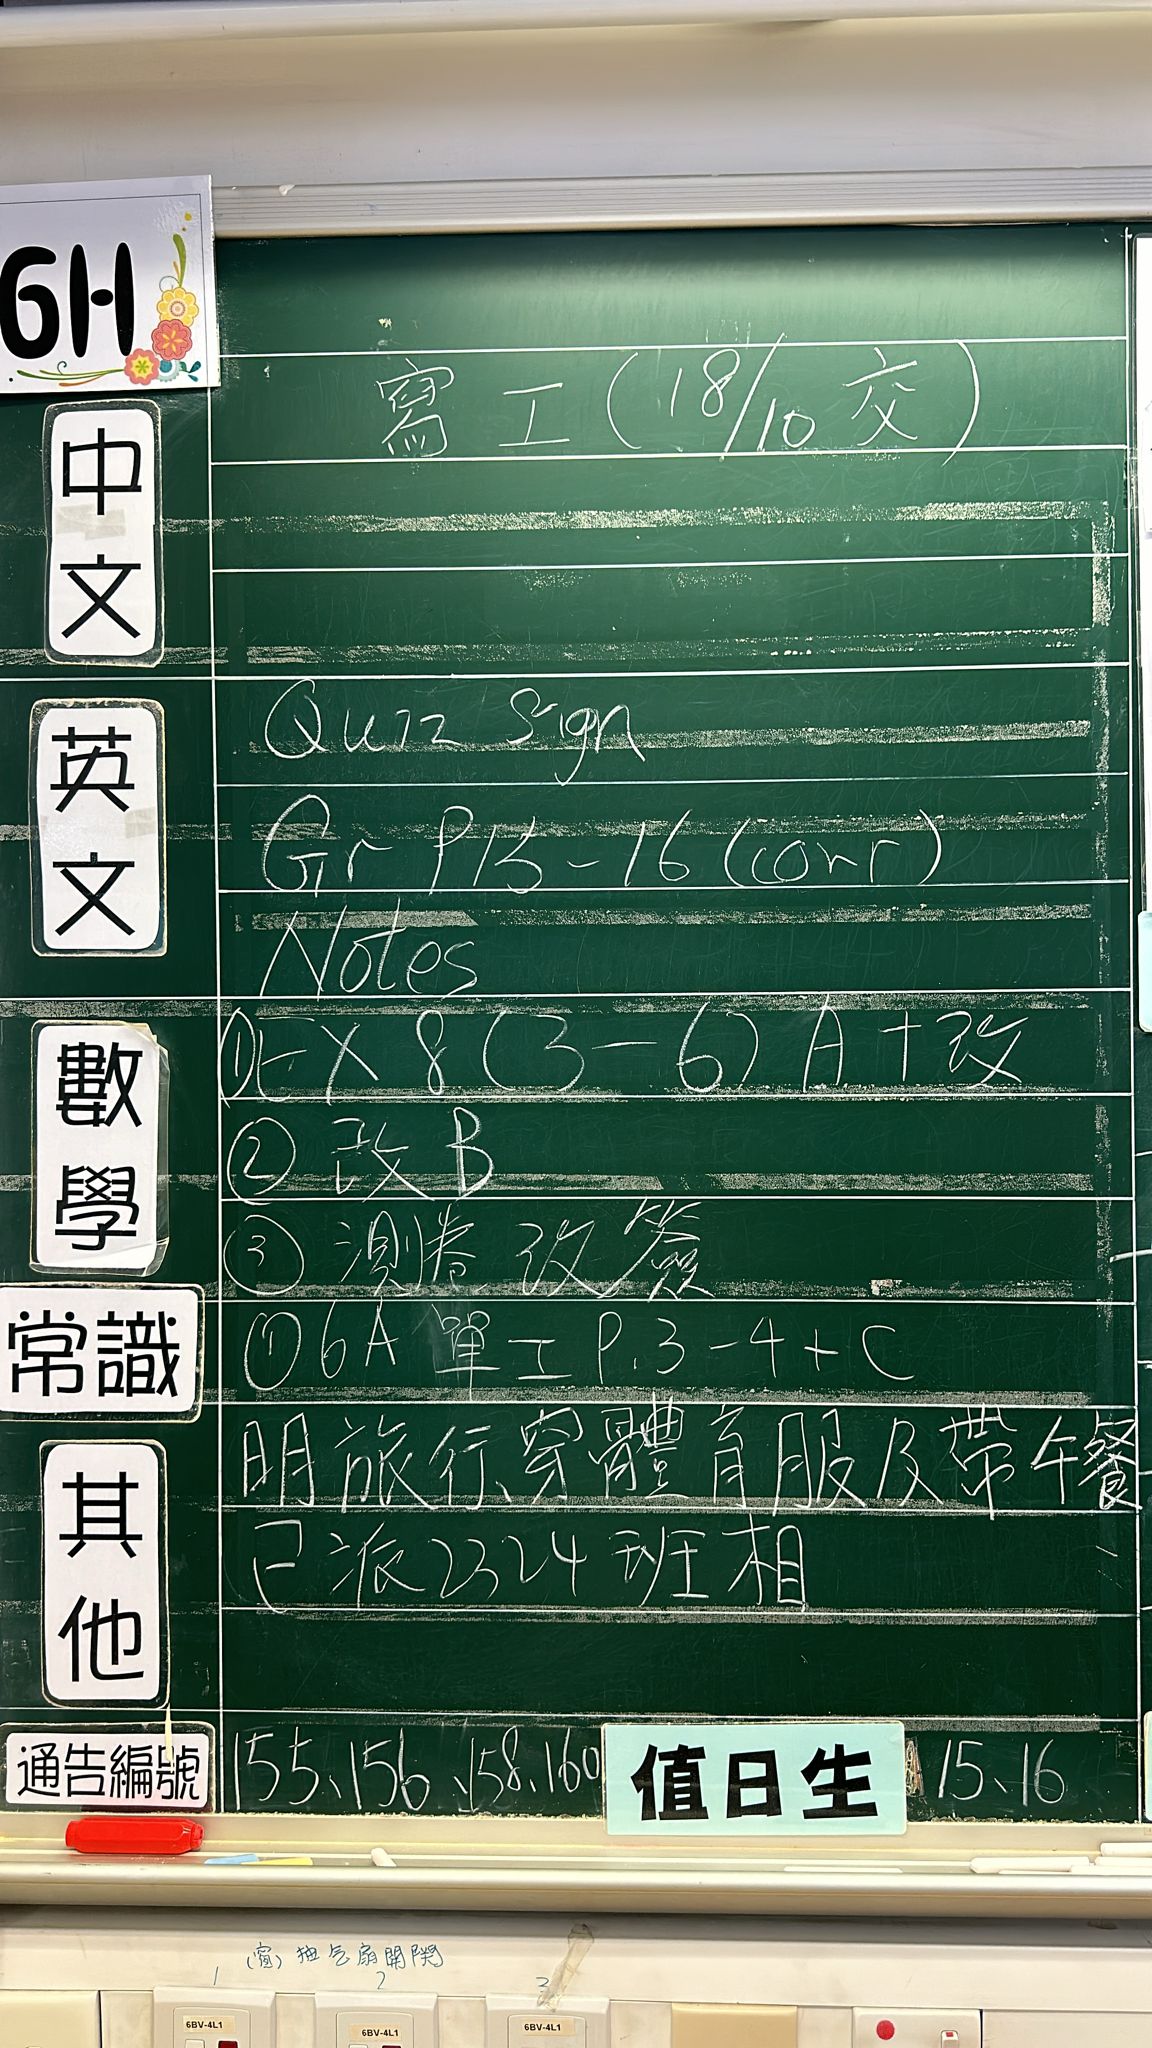 6H
中文
寫工(18/10交)
英文
Quiz sign
Gr P15-16 (corr)
Notes
數學
①EX 8 (3-6) A+改
②改B
③測卷 改簽
常識
①6A 單工 P.3-4+C
其他
明旅行、穿體育服及帶午餐
已派2324班相
通告編號
155、156、158、160
值日生
15、16
(窗) 抽气扇開関
1 2 3
6BV-4L1
6BV-4L1
6BV-4L1